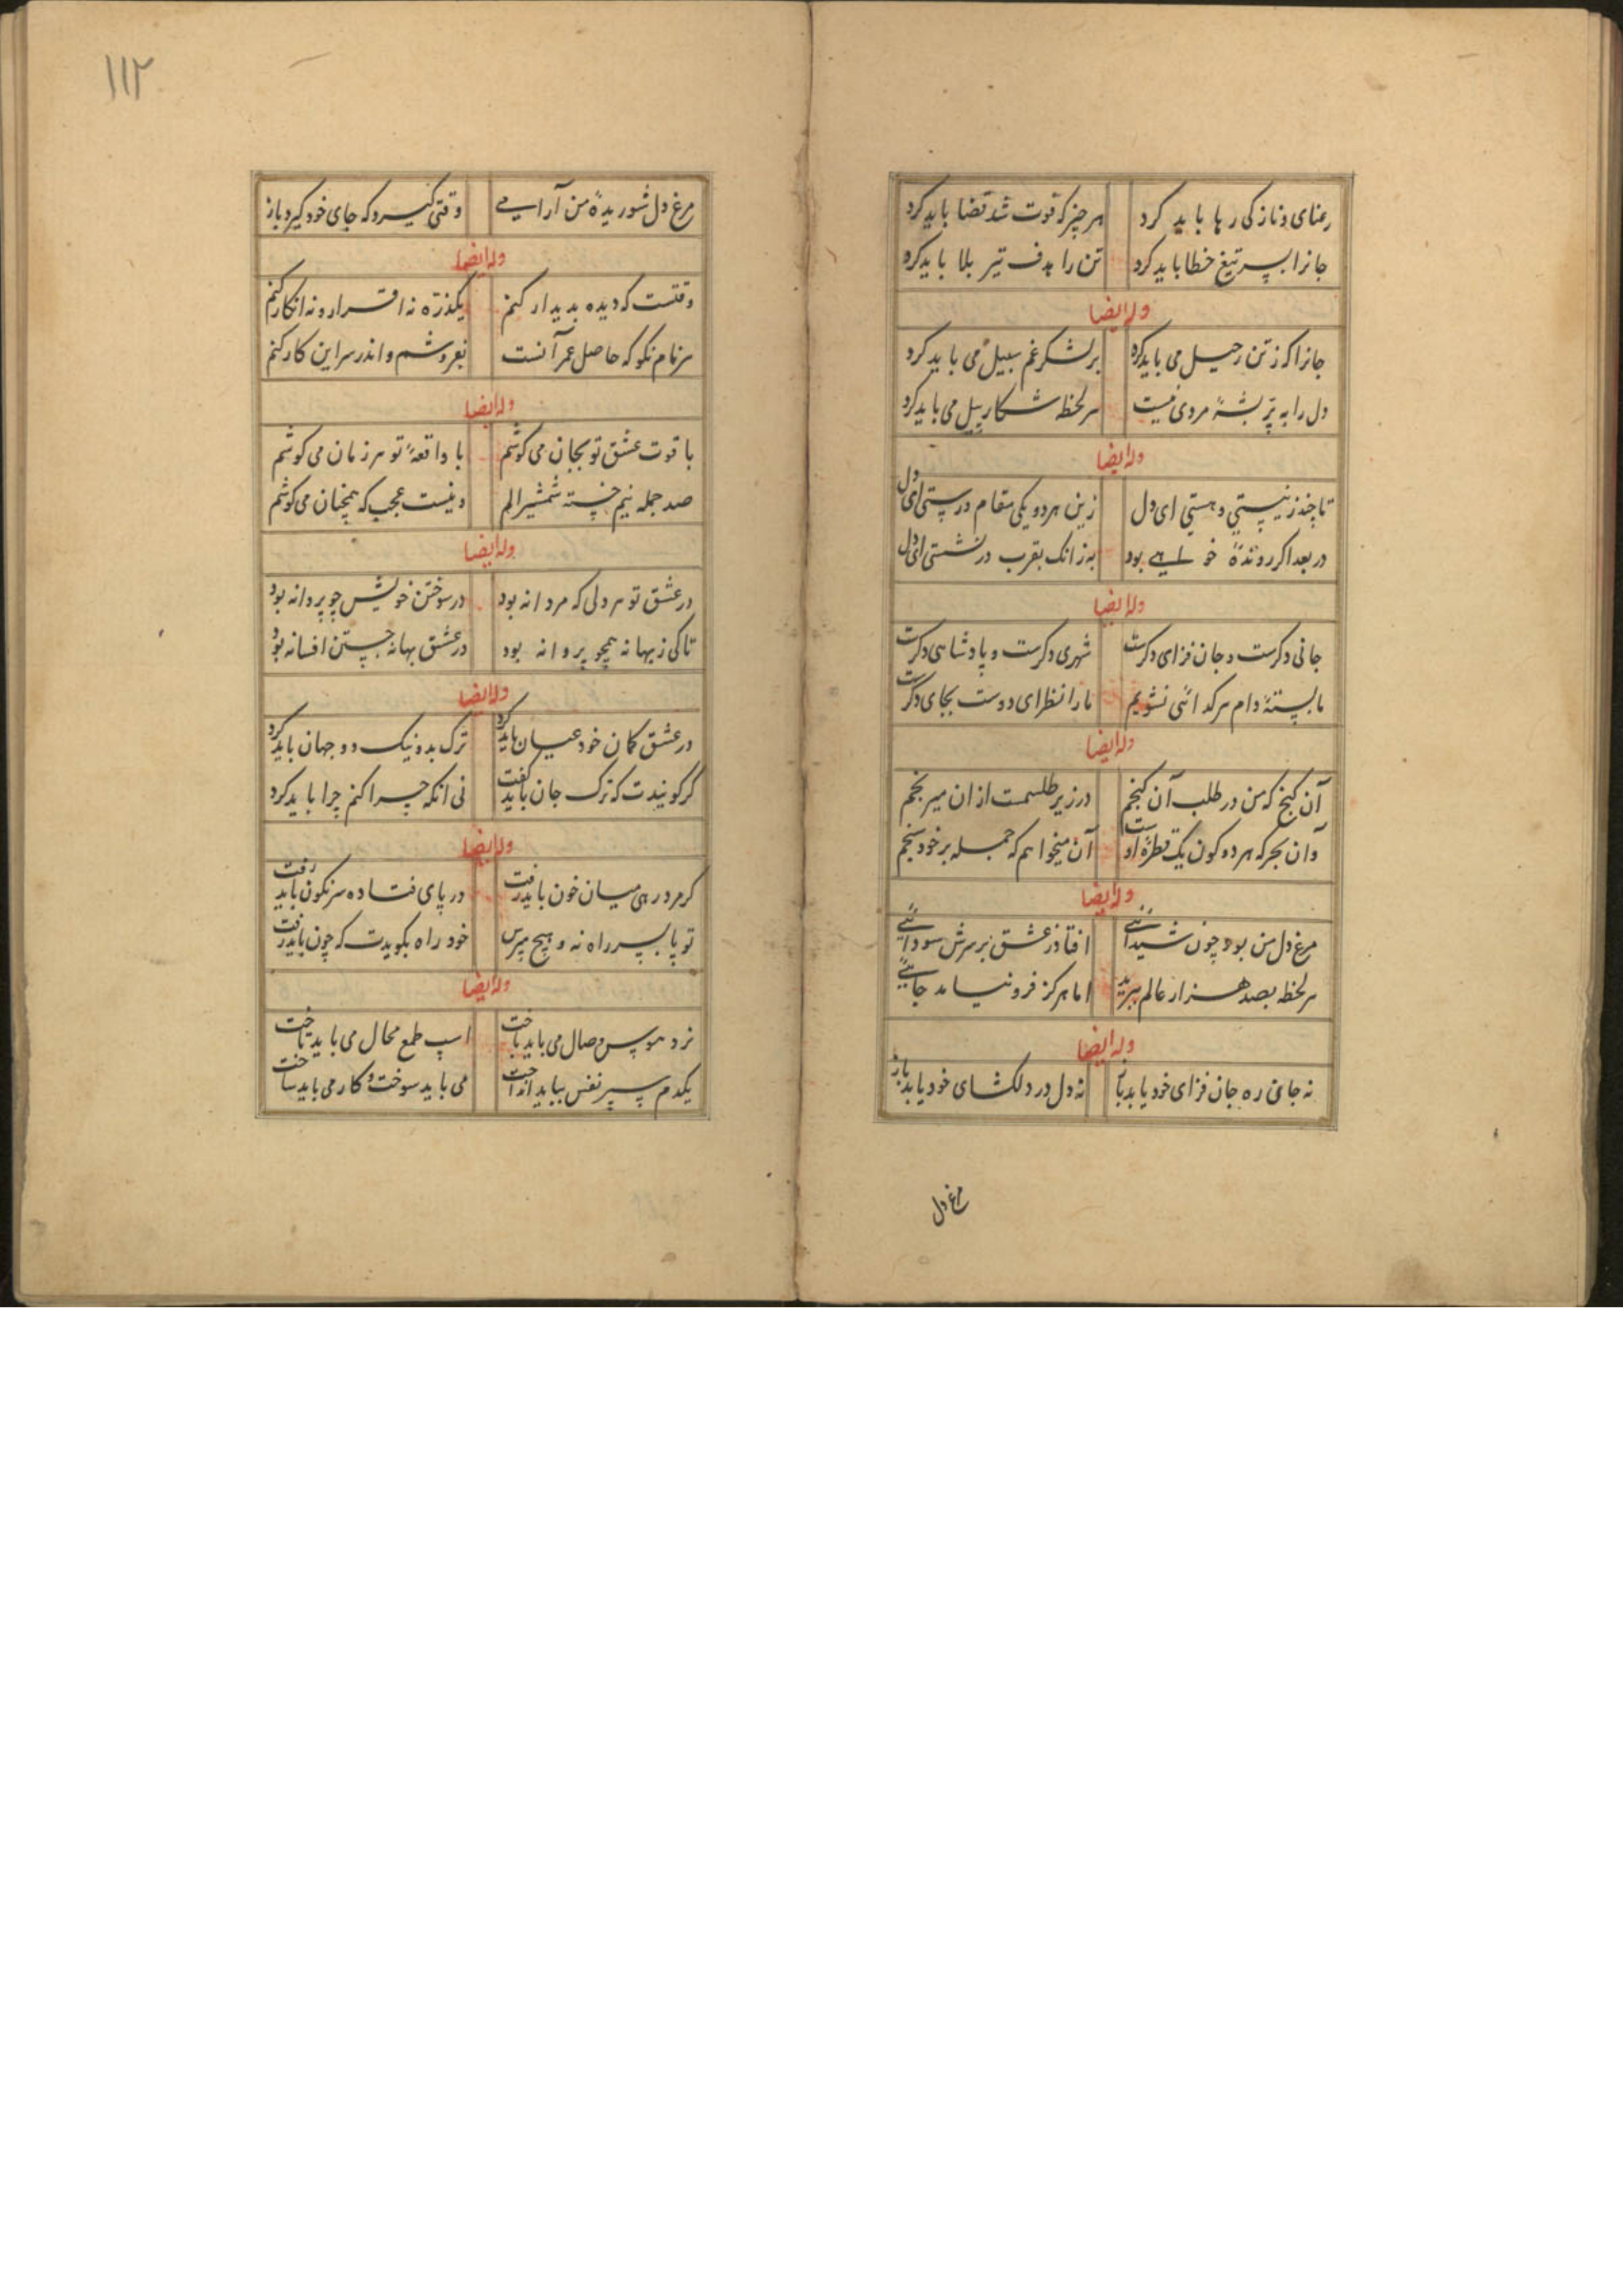 رعنای و نازکی رها باید کرد هرچیز که فوت شد قضا باید کرد
جانرا سپر تیغ خطا باید کرد تن را هدف تیر بلا باید کرد
وله ایضا
جانرا که ز تن رحیل می باید کرد بر لشکر غم سبیل می باید کرد
دل را به پر پشهٔ مردی نیست هر لحظه شکار پیل می باید کرد
وله ایضا
تا چند ز نیستی و هستی ای دل زین هر دو یکی مقام درستی ای دل
در بعد اکر روندهٔ خواهی بود به زانک بقرب در نشستی ای دل
وله ایضا
جانی دکرست و جان فزای دکرست شهری دکرست و پادشاهی دکرست
ما بستهٔ دام هر کدائی نشویم ما را نظر ای دوست بجای دکرست
وله ایضا
آن کنج که من در طلب آن کنجم در زیر طلسمت از ان میرنجم
وان بحر که هر دو کون یک قطرهٔ اوست آن میخواهم که جمله بر خود سنجم
وله ایضا
مرغ دل من بود چون شیدائی افتاد ز عشق بر سرش سودائی
هر لحظه بصد هزار عالم بپرید اما هرکز فرو نیامد جائی
وله ایضا
نه جانی ره جان فزای خود یابد باز نه دل در دلکشای خود یابد باز
مرغ دل
۱۱۲
مرغ دل شوریدهٔ من آرامی وقتی کیرد که جای خود کیرد باز
وله ایضا
وقتست که دیده بدیدار کنم یکذره نه اقرار و نه انکار کنم
هر نام نکو که حاصل عمر آنست بفروشم و اندر سر این کار کنم
وله ایضا
با قوت عشق تو بجان می کوشم با واقعهٔ تو هر زمان می کوشم
صد جمله نیم خستهٔ شمشیر الم وینست عجب که همچنان می کوشم
وله ایضا
در عشق تو هر دلی که مردانه بود در سوختن خویش چو پروانه بود
تا کی ز بهانه همچو پروانه بود در عشق بهانه جستن افسانه بود
وله ایضا
در عشق کمان خود عیان باید کرد ترک بد و نیک دو جهان باید کرد
کر کویندت که ترک جان باید کفت نی انکه چرا کنم چرا باید کرد
وله ایضا
کر مرد رهی میان خون باید رفت در پای فتاده سرنکون باید رفت
تو پا بسر راه نه و هیچ مپرس خود راه بکویدت که چون باید رفت
وله ایضا
نرد هوس وصال می باید باخت اسپ طمع محال می باید تاخت
یکدم سپر نفس بباید انداخت می باید سوخت و کار می باید ساخت